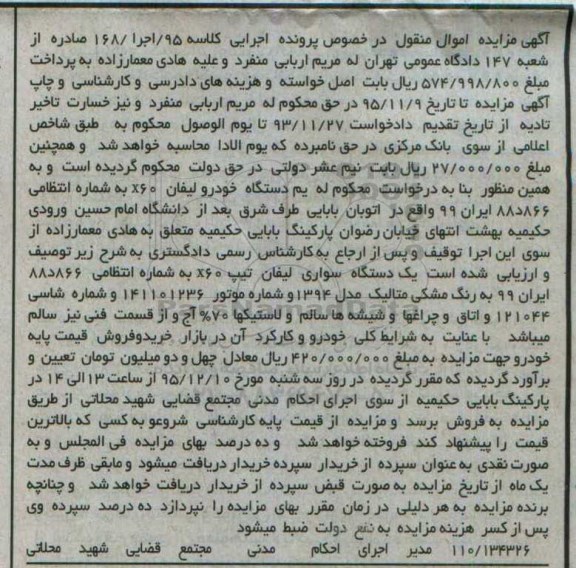 آگهی مزایده اموال منقول در خصوص پرونده اجرایی کلاسه ۹۵/اجرا /۱۶۸ صادره از
شعبه ۱۴۷ دادگاه عمومی تهران له مریم اربابی منفرد و علیه هادی معمارزاده به پرداخت
مبلغ ۵۷۴/۹۹۸/۸۰۰ ریال بابت اصل خواسته و هزینه های دادرسی و کارشناسی و چاپ
آگهی مزایده تا تاریخ ۹۵/۱۱/۹ در حق محکوم له مریم اربابی منفرد و نیز خسارت تاخیر
تادیه از تاریخ تقدیم دادخواست ۹۳/۱۱/۲۷ تا یوم الوصول محکوم به طبق شاخص
اعلامی از سوی بانک مرکزی در حق نامبرده که یوم الادا محاسبه خواهد شد و همچنین
مبلغ ۲۷/۰۰۰/۰۰۰ ریال بابت نیم عشر دولتی در حق دولت محکوم گردیده است و به
همین منظور بنا به درخواست محکوم له یم دستگاه خودرو لیفان x۶۰ به شماره انتظامی
۸۶۶د۸۸ ایران ۹۹ واقع در اتوبان بابایی طرف شرق بعد از دانشگاه امام حسین ورودی
حکیمیه بهشت انتهای خیابان رضوان پارکینگ بابایی حکیمیه متعلق به هادی معمارزاده از
سوی این اجرا توقیف و پس از ارجاع به کارشناس رسمی دادگستری به شرح زیر توصیف
و ارزیابی شده است یک دستگاه سواری لیفان تیپ x۶۰ به شماره انتظامی ۸۶۶د۸۸
ایران ۹۹ به رنگ مشکی متالیک مدل ۱۳۹۴ و شماره موتور ۱۴۱۱۰۱۲۳۶ و شماره شاسی
۱۲۱۰۴۴ و اتاق و چراغها و شیشه ها سالم و لاستیکها ۷۰% آج و از قسمت فنی نیز سالم
میباشد با عنایت به شرایط کلی خودرو و کارکرد آن در بازار خریدوفروش قیمت پایه
خودرو جهت مزایده به مبلغ ۴۲۰/۰۰۰/۰۰۰ ریال معادل چهل و دو میلیون تومان تعیین و
برآورد گردیده که مقرر گردیده در روز سه شنبه مورخ ۹۵/۱۲/۱۰ از ساعت ۱۳ الی ۱۴ در
پارکینگ بابایی حکیمیه از سوی اجرای احکام مدنی مجتمع قضایی شهید محلاتی از طریق
مزایده به فروش برسد و مزایده از قیمت پایه کارشناسی شروعو به کسی که بالاترین
قیمت را پیشنهاد کند فروخته خواهد شد و ده درصد بهای مزایده فی المجلس و به
صورت نقدی به عنوان سپرده از خریدار سپرده خریدار دریافت میشود و مابقی ظرف مدت
یک ماه از تاریخ مزایده به صورت قبض سپرده از خریدار دریافت خواهد شد و چنانچه
برنده مزایده به هر دلیلی در زمان مقرر بهای مزایده را نپردازد ده درصد سپرده وی
پس از کسر هزینه مزایده به نفع دولت ضبط میشود
۱۱۰/۱۳۴۳۲۶ مدیر اجرای احکام مدنی مجتمع قضایی شهید محلاتی